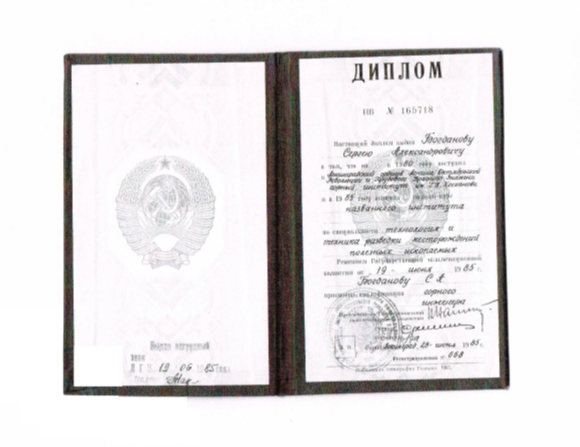 ДИПЛОМ
ПВ № 165718
Настоящий диплом выдан Богданову
Сергею Александровичу
в том, что он в 1980 году поступил
в Ленинградский ордена Ленина, Октябрьской
Революции и Трудового Красного Знамени
горный институт им. Г.В. Плеханова
и в 1985 году окончил
названного института
по специальности технология и
техника разведки месторождений
полезных ископаемых
Решением Государственной экзаменационной
комиссии от 19 июня 1985 г.
Богданову С.А.
присвоена квалификация горного
инженера
М. П.
Город Ленинград, 28 июня 1985.
Регистрационный № 668
Выдан нагрудный
знак
ЛГИ 19 06 1985